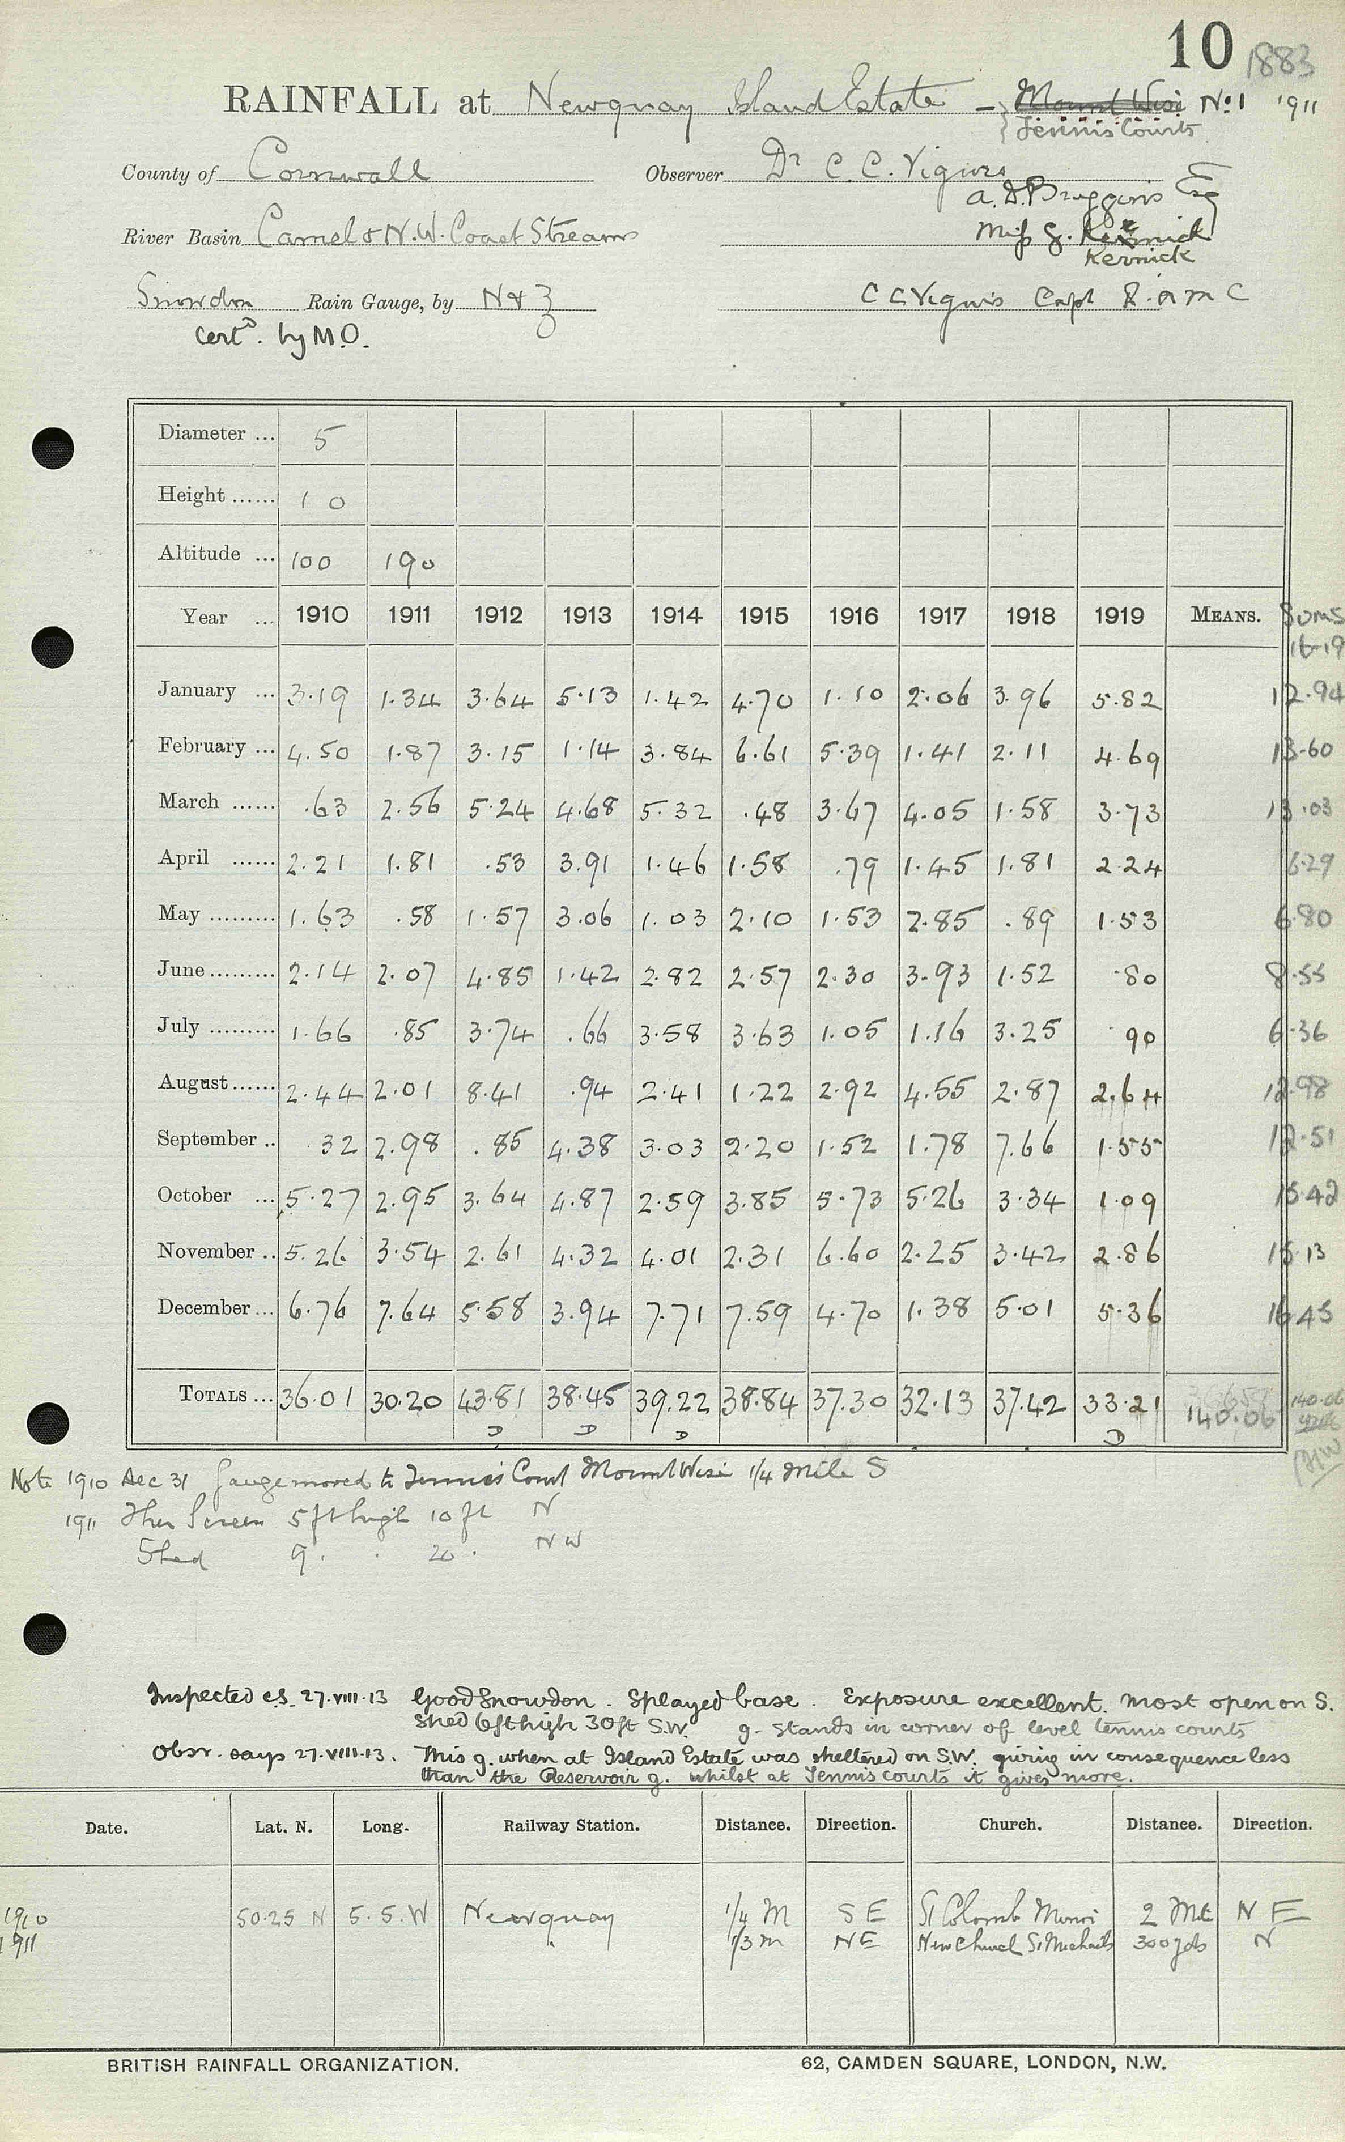 10 1883
RAINFALL at Newquay Island Estate - Mount Wise No 1 1911
Tennis Courts
County of Cornwall Observer Dr C. C. Vigurs
A. D. Bruggins Esq
River Basin Camel & N.W. Coast Streams Miss G. Kernick
Kernick
Snowdon Rain Gauge, by N & Z C C Vigurs Capt R.A.M.C
Certd. by M.O.
Diameter ... 5
Height ...... 1 0
Altitude ... 100 190
Year ... 1910 1911 1912 1913 1914 1915 1916 1917 1918 1919 MEANS. Sums
16-19
January ... 3.19 1.34 3.64 5.13 1.42 4.70 1.10 2.06 3.96 5.82 12.94
February ... 4.50 1.87 3.15 1.14 3.84 6.61 5.39 1.41 2.11 4.69 13.60
March ...... .63 2.56 5.24 4.68 5.32 .48 3.67 4.05 1.58 3.73 13.03
April ...... 2.21 1.81 .53 3.91 1.46 1.58 .79 1.45 1.81 2.24 6.29
May ......... 1.63 .58 1.57 3.06 1.03 2.10 1.53 2.85 .89 1.53 6.80
June ......... 2.14 2.07 4.85 1.42 2.82 2.57 2.30 3.93 1.52 .80 8.55
July ......... 1.66 .85 3.74 .66 3.58 3.63 1.05 1.16 3.25 .90 6.36
August ...... 2.44 2.01 8.41 .94 2.41 1.22 2.92 4.55 2.87 2.64 12.98
September .. 32 2.98 .85 4.38 3.03 2.20 1.52 1.78 7.66 1.55 12.51
October ... 5.27 2.95 3.64 4.87 2.59 3.85 5.73 5.26 3.34 1.09 15.42
November .. 5.26 3.54 2.61 4.32 4.01 2.31 6.60 2.25 3.42 2.86 15.13
December ... 6.76 7.64 5.58 3.94 7.71 7.59 4.70 1.38 5.01 5.36 16.45
TOTALS ... 36.01 30.20 43.81 38.45 39.22 38.84 37.30 32.13 37.42 33.21 140.06 140.06
D D D D
Note 1910 Dec 31 Gauge moved to Tennis Court Mount Wise 1/4 mile S
1911 Ther Screen 5 ft high 10 ft N
Shed 9 . . 20 . NW
Inspected C.S. 27.VIII.13 Good Snowdon. Splayed base. Exposure excellent. Most open on S.
Shed 6ft high 30ft S.W. g. stands in corner of level tennis courts
Obsr. says 27.VIII.13. This g. when at Island Estate was sheltered on S.W. giving in consequence less
than the Reservoir g. whilst at Tennis courts it gives more.
Date. Lat. N. Long. Railway Station. Distance. Direction. Church. Distance. Direction.
1910 50.25 N 5.5.W Newquay 1/4 M S E St Colomb Minor 2 Mls N E
1911 " 1/3 m NE New Church St Michaels 300 yds N
BRITISH RAINFALL ORGANIZATION. 62, CAMDEN SQUARE, LONDON, N.W.